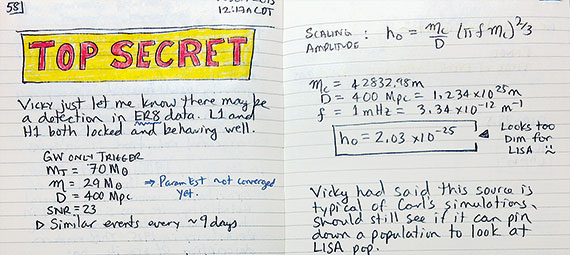 58
12:17A CDT
TOP SECRET
Vicky just let me know there may be
a detection in ER8 data. L1 and
H1 both locked and behaving well.
GW ONLY TRIGGER
M_T = 70 M⊙
m = 29 M⊙ ⇒ Param Est not converged
D = 400 Mpc yet.
SNR = 23
▷ Similar events every ~9 days
SCALING AMPLITUDE : h₀ = m_c/D (π f m_c)^2/3
m_c = 42832.98 m
D = 400 Mpc = 1.234 × 10^25 m
f = 1 mHz = 3.34 × 10^-12 m^-1
h₀ = 2.03 × 10^-25 ◁ Looks too
Dim for
LISA
Vicky had said this source is
typical of Carl's simulations,
should still see if it can pin
down a population to look at
LISA pop.